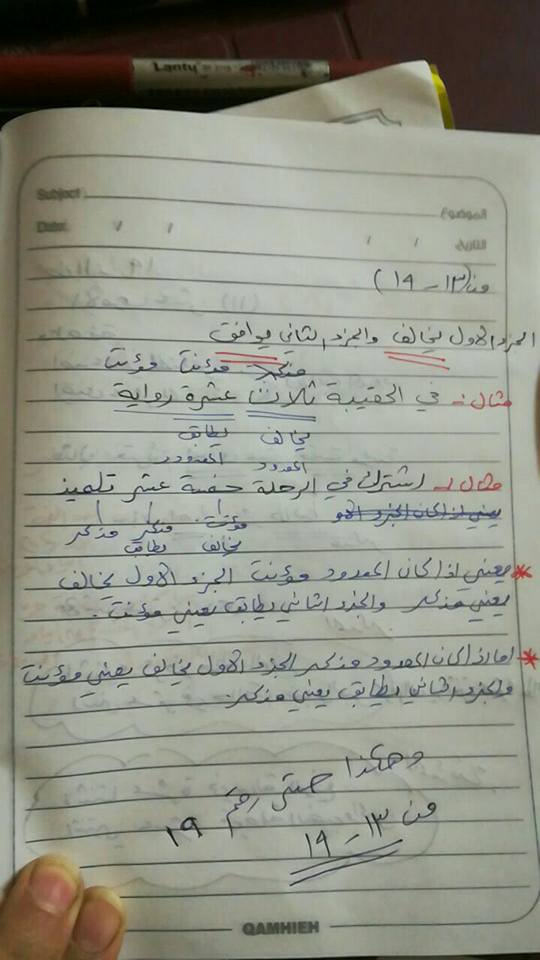 Lantu
Subject: الموضوع
Date: / / / / التاريخ
من (١٣ - ١٩)
الجزء الاول يخالف والجزء الثاني يوافق
مذكر مؤنث مؤنث
مثال:- في الحقيبة ثلاث عشرة رواية
يخالف يطابق
المعدود المعدود
مثال:- اشترك في الرحلة خمسة عشر تلميذ
يعني اذا كان الجزء الاو
مؤنث مذكر مذكر
يخالف يطابق
* يعني اذا كان المعدود مؤنث الجزء الاول يخالف
يعني مذكر والجزء الثاني يطابق يعني مؤنث.
* اما اذا كان المعدود مذكر الجزء الاول يخالف يعني مؤنث
والجزء الثاني يطابق يعني مذكر.
وهكذا حتى رقم ١٩
من ١٣ - ١٩
QAMHIEH